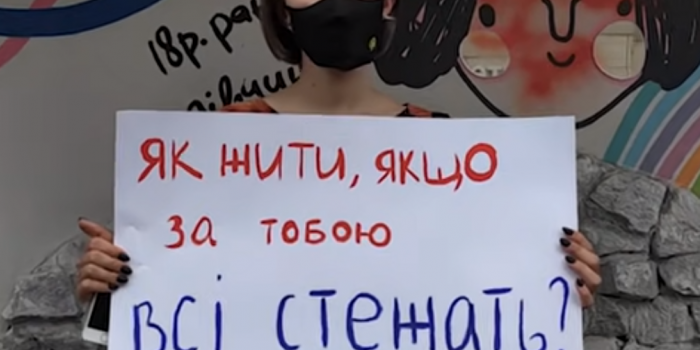 18р.
ЯК ЖИТИ, ЯКЩО
ЗА ТОБОЮ
ВСІ СТЕЖАТЬ?